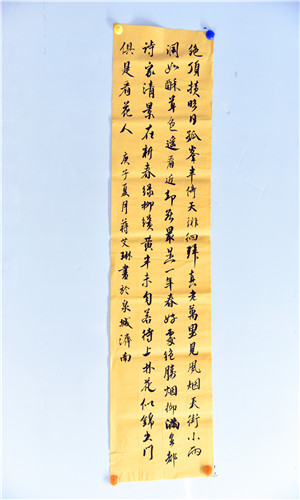 絶頂横临日孤峯半倚天徘徊拜真老萬里見風烟天街小雨
润如酥草色遥看近却無最是一年春好處絶勝烟柳满皇都
诗家清景在新春緑柳纔黄半未匀若待上林花似錦出门
俱是看花人 庚子夏月蒋艾琳書於泉城濟南